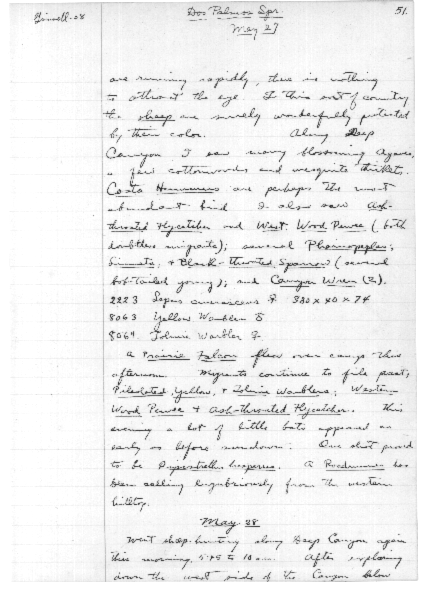 Grinnell-08
Dos Palmos Spr.
51.
May 27
are running rapidly, there is nothing
to attract the eye. In this sort of country
the sheep are surely wonderfully protected
by their color. Along Deep
Canyon I saw many blossoming Agaves,
a few cottonwoods and mesquite thickets.
Costa Hummers are perhaps the most
abundant bird. I also saw Ash-
throated Flycatcher and West. Wood Pewee, (both
doubtless migrate); several Phainopeplas,
Linnets, + Black-throated Sparrow (several
bob-tailed young); and Canyon Wren (2).
2223 Lepus ♀ 330 x 40 x 74
8063 Yellow Warbler ♂
8064 Tolmie Warbler ♀
A Prairie Falcon flew over camp this
afternoon. Migrants continue to file past;
Pileolated, Yellow, + Tolmie Warblers; Western
Wood Pewee + Ash-throated Flycatcher. This
evening a lot of little bats appeared as
early as before sundown. One shot proved
to be Pipistrellus hesperus. A Roadrunner has
been calling lugubriously from the western
hilltop.
May 28
Went sheep-hunting along Deep Canyon again
this morning, 5:45 to 10 a.m. After exploring
down the west side of the Canyon below